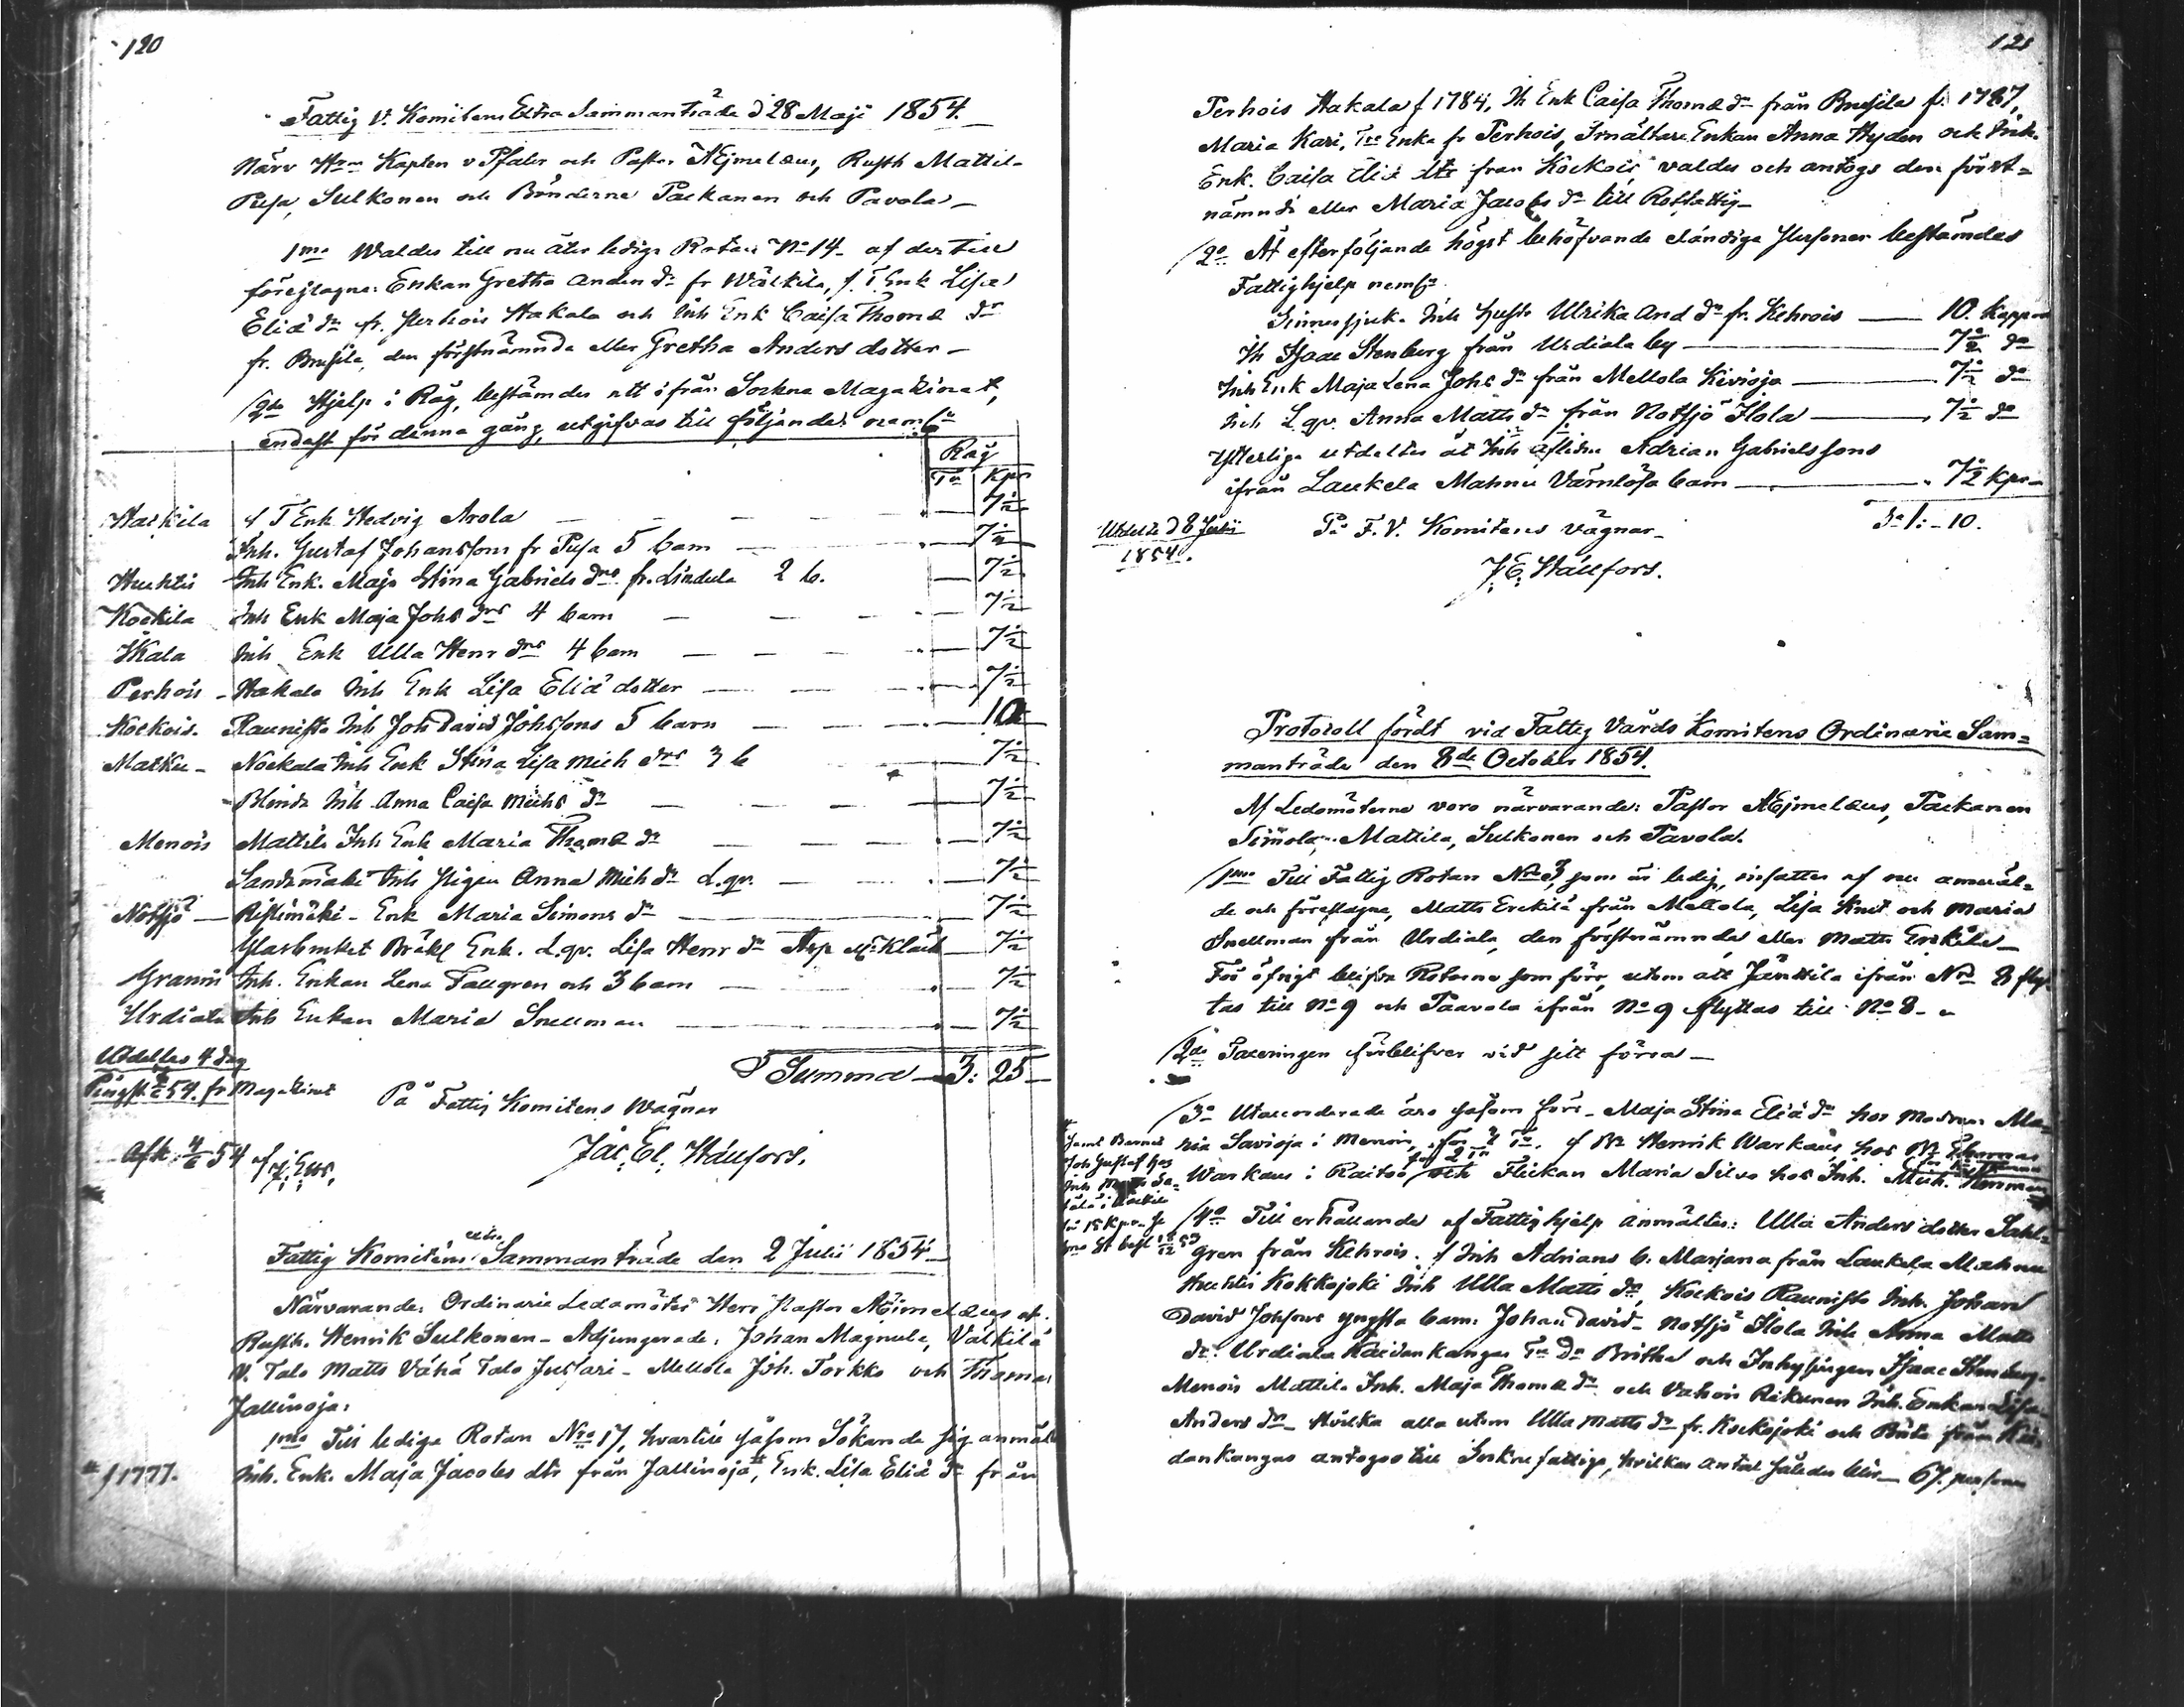 120
Fattig V. Komitens Extra Sammanträde d 28 Maji 1854.
Närv Hrr Kapten v Pfaler och Pastor Aejmelæus, Rusth Mattil-
Pusa, Sulkonen och Bönderne Packanen och Pavola
1mo Waldes till nu åter lediga Rotan No 14 af der till
föreslagne: Enkan Gretha Anders dr fr Wälkilä, f. T. Enk Lisa
Eliæ dr fr. Perhois Hakala och Inh Enk Caisa Thomæ dr
fr. Brusila, den förstnämnda eller Gretha Anders dotter
2do Hjelp i Råg, bestämdes att ifrån Sockne Magazinet,
endast för denna gång, utgifvas till följande: neml
Råg
Tn Kpr
f T Enk Hedvig Arola 7½
Inh. Gustaf Johanssons fr Pusa 5 barn 7½
Huhtis Inh Enk. Maja Stina Gabriels drs fr. Lindula 2 b. 7½
Kockila Inh Enk Maja Johs drs 4 barn 7½
Ikala Inh Enk Ulla Henr drs 4 barn 7½
Perhois Hakala Inh Enk Lisa Eliæ dotter 7½
Kockois. Raunisto Inh Joh David Johssons 5 barn 10
Matku Nockala Inh Enk Stina Lisa Mich drs 3 b 7½
Blinda Inh Anna Caisa Michs dr 7½
Menois Mattila Inh Enk Maria Thomæ dr 7½
Sandsmäki Inh Pigan Anna Mich dr L.qv. 7½
Notsjö Ristimäki Enk Maria Simons dr 7½
Glasbruket Bräkl Enk. L.qv. Lisa Henr dr 7½
Inh. Enkan Lena Tallgren och 3 barn 7½
Urdiala Inh Enkan Maria Snellman 7½
Summa 3: 25
Utdeltes 4 dag
Pingst 54. fr Magazinet
På Fattig Komitens Wägnar
Jac. El. Hällfors.
Afk. 4/6 54
Fattig Komitens extra Sammanträde den 2 Julii 1854
Närvarande: Ordinarie Ledamöter Herr Pastor Aejmelæus o.
Rusth. Henrik Sulkonen - Adjungerade: Johan Magnula, Välkilä
N. Talo Matts Vähä Talo Jussari - Mellola Joh. Torkko och Thomas
Jallinoja:
1mo Till lediga Rotan Nro 17, hvartill såsom Sökande sig anmält
# f 1777. Inh. Enk. Maja Jacobs dtr från Jallinoja #, Enk. Lisa Eliæ dr från
121
Perhois Hakala f 1784, Ih Enk Caisa Thomæ dr från Brusila f. 1787,
Maria Kari, Tre Enka fr Perhois, Enkan Anna Hyden och Inh.
Enk. Caisa Eliæ dtr från Kockois valdes och antogs den först-
nämnde eller Maria Jacobs dr till Rotfattig
2o Åt efterföljande högst behöfvande eländiga personer bestämdes
Fattighjelp neml.
Sinnessjuk. Inh Hustr Ulrika And dr fr. Kehrois 10. Kappar
Ih Isaac Stenberg från Urdiala by 7½ do
Inh Enk Maja Lena Johs dr från Mellola Kivioja 7½ do
Inh L.qv. Anna Matts dr från Notsjö Ilola 7½ do
Ytterliga utdeltes åt Inh aflidne Adrian Gabrielssons
ifrån Laukela Mahnu Värnlösa barn 7½ Kpr
Utdelte d 8 Julii
1854.
10.
På F. V. Komitens vägnar
J. E. Hällfors.
Protocoll fördt vid Fattig Vårds Komitens Ordinarie Sam=
manträde den 8de October 1854.
Af Ledamöterne voro närvarande: Pastor Aejmelæus, Packanen
Simola, Mattila, Sulkonen och Pavola.
1mo Till Fattig Rotan Nro 3, som är ledig, insattes af nu anmäl-
de och föreslagne, Matts Erckilä från Mellola, Lisa Knit och Maria
Snellman från Urdiala, den förstnämnda eller Matts Erckilä
För öfrigt blifva Rotarne som förr, utom att Jänttilä ifrån Nro 8 flyt-
tas till No 9 och Paavola ifrån No 9 flyttas till No 8.
2do Taxeringen förblifver vid sitt förra
3o Utaccorderade äro såsom förr - Maja Stina Eliæ dr hos Modren Ma-
ria Savioja i Menois, för 2 Tn. Henrik Warkaus hos
Warkaus i Raitoo, för 2 Tn och Flickan Maria Silvo hos Inh. Mich.
samt Barnet
Joh Gustaf hos
4o Till erhållande af Fattighjelp anmältes: Ulla Anders dotter Sahl-
gren från Kehrois. Inh Adrians b. Marjana från Laukela Mahnu
Huhtis Kokkojoki Inh Ulla Matts dr, Kockois Raunisto Inh. Johan
David Johssons yngsta barn: Johan David - Notsjö Ilola Inh Anna Matts
dr. Urdiala Kaidankangas Tn Dr Britha och Inhysingen Isaac Stenberg.
Menois Mattila Inh. Maja Thomæ dr och Vahois Rekunen Inh. Enkan Lisa
Anders dr hvilka alla utom Ulla Matts dr fr. Kockojoki och Brita från Kai-
dankangas antogos till Socknefattige, hvilkas antal således blir 67. personer